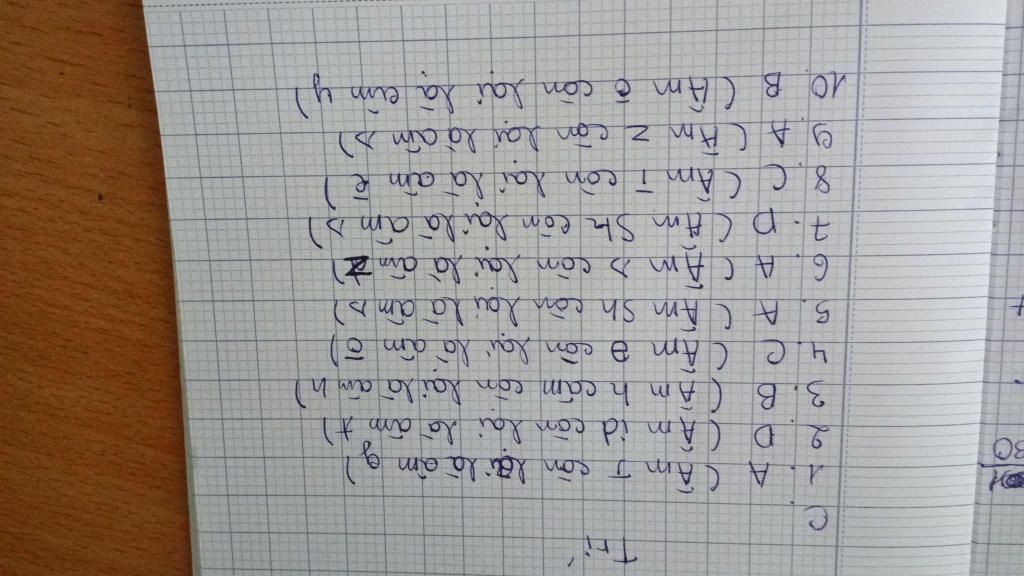 Trí
C
1. A (Âm J còn lại là âm g)
2. D (Âm id còn lại là âm t)
3. B (Âm h câm còn lại là âm h)
4. C (Âm ə còn lại là âm ō)
5. A (Âm sh còn lại là âm s)
6. A (Âm s còn lại là âm z)
7. D (Âm Sh còn lại là âm s)
8. C (Âm ī còn lại là âm ē)
9. A (Âm z còn lại là âm s)
10. B (Âm ō còn lại là âm y)